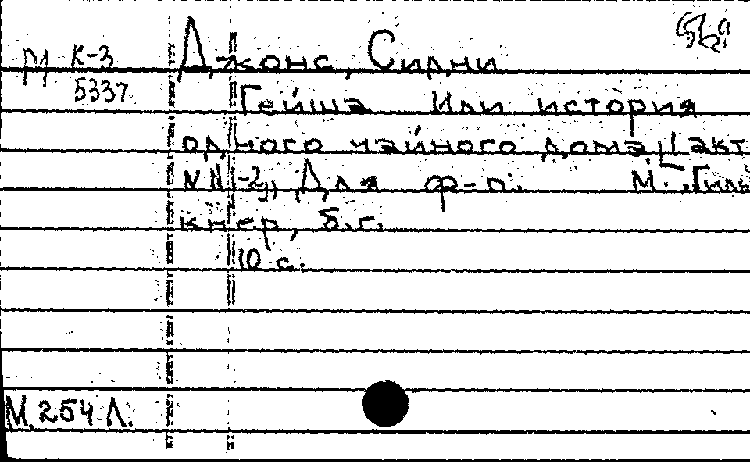 М К-3
5337
Джонс, Сидни
Гейша Или история
одного чайного дома, I акт
NN 1-2, Для ф-п. М., Гиль
кнер, б.г.
10 с.
М. 254 Л.